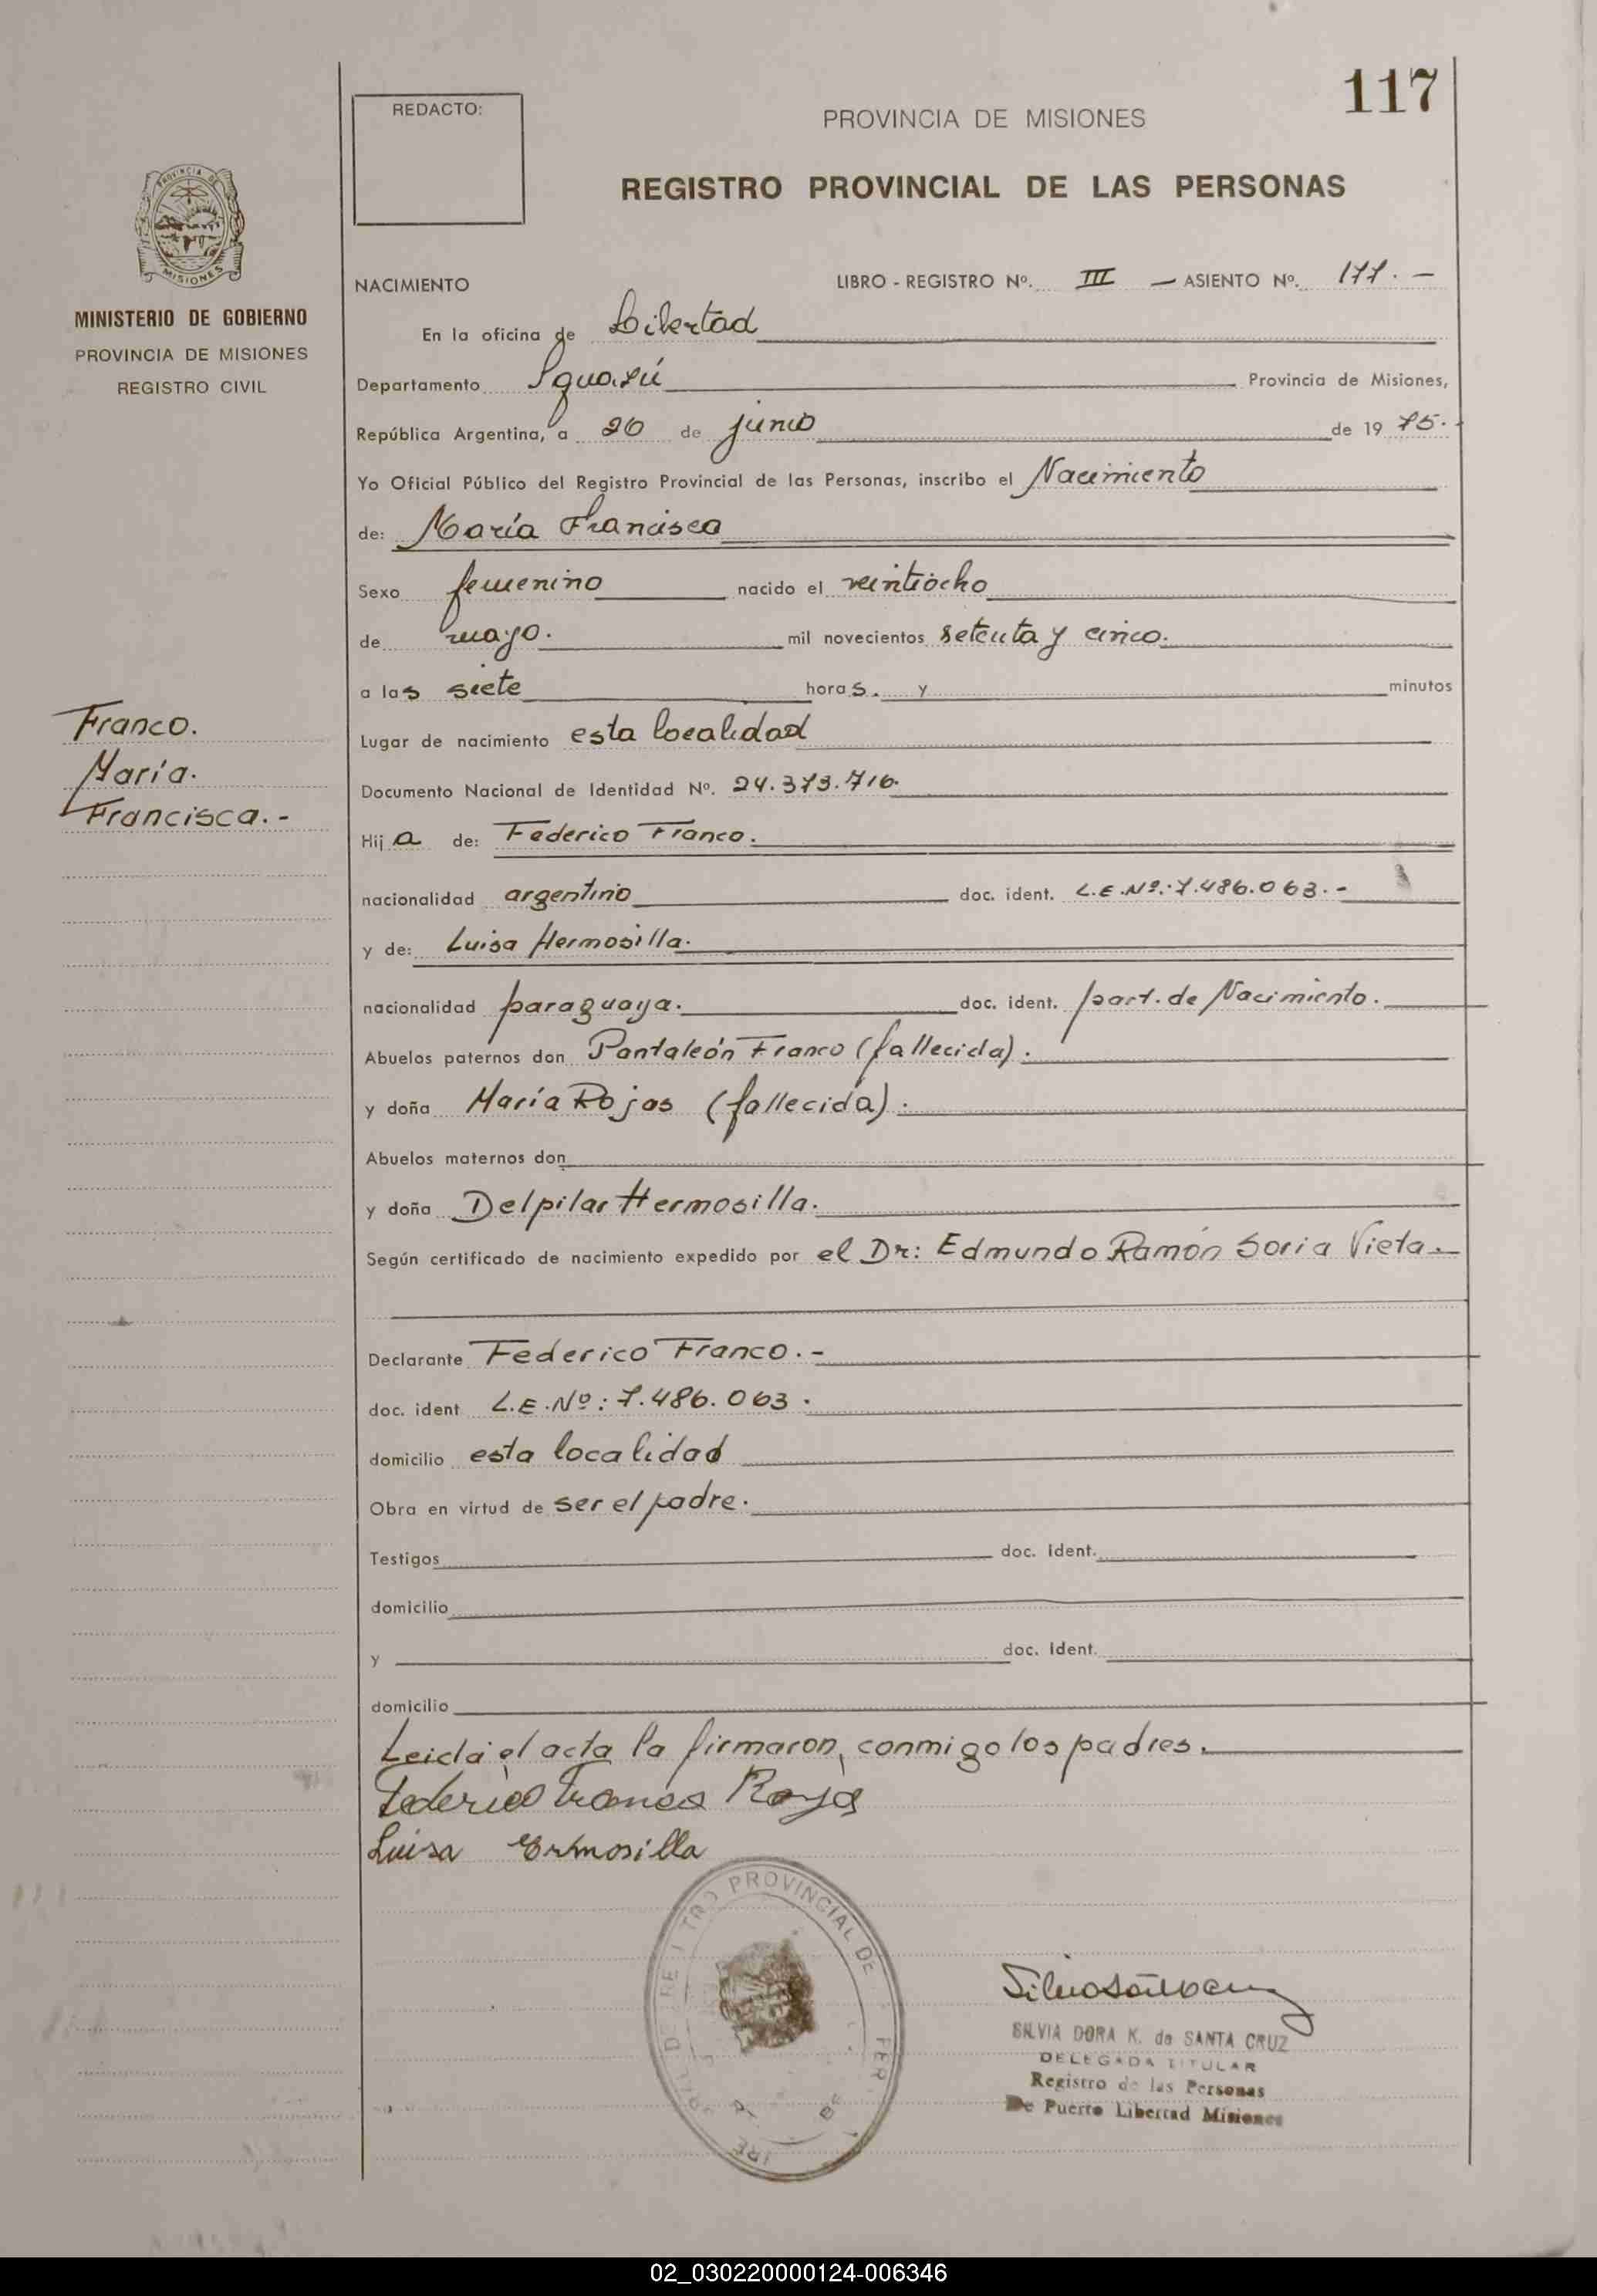 117
REDACTO:
PROVINCIA DE MISIONES
REGISTRO PROVINCIAL DE LAS PERSONAS
PROVINCIA DE
MISIONES
MINISTERIO DE GOBIERNO
PROVINCIA DE MISIONES
REGISTRO CIVIL
NACIMIENTO LIBRO - REGISTRO Nº. III — ASIENTO Nº. 177. —
En la oficina de Libertad
Departamento Iguazú Provincia de Misiones,
República Argentina, a 20 de junio de 1975.
Yo Oficial Público del Registro Provincial de las Personas, inscribo el Nacimiento
de: María Francisca
Sexo femenino nacido el veintiocho
de mayo. mil novecientos setenta y cinco.
a las siete horas. y minutos
Franco.
María.
Francisca.-
Lugar de nacimiento esta localidad
Documento Nacional de Identidad Nº. 24.373.716.
Hija de: Federico Franco.
nacionalidad argentino doc. ident. L.E.Nº.:7.486.063.-
y de: Luisa Hermosilla.
nacionalidad paraguaya. doc. ident. part. de Nacimiento.
Abuelos paternos don Pantaleón Franco (fallecida).
y doña María Rojas (fallecida).
Abuelos maternos don
y doña Delpilar Hermosilla.
Según certificado de nacimiento expedido por el Dr: Edmundo Ramón Soria Vieta.-
Declarante Federico Franco.-
doc. ident L.E.Nº: 7.486.063.
domicilio esta localidad
Obra en virtud de ser el padre.
Testigos doc. Ident.
domicilio
y doc. Ident.
domicilio
Leída el acta la firmaron, conmigo los padres.
Federico Franco Roja
Luisa Ermosilla
PROVINCIAL DE
SILVIA DORA K. de SANTA CRUZ
DELEGADA TITULAR
Registro de las Personas
De Puerto Libertad Misiones
02_030220000124-006346